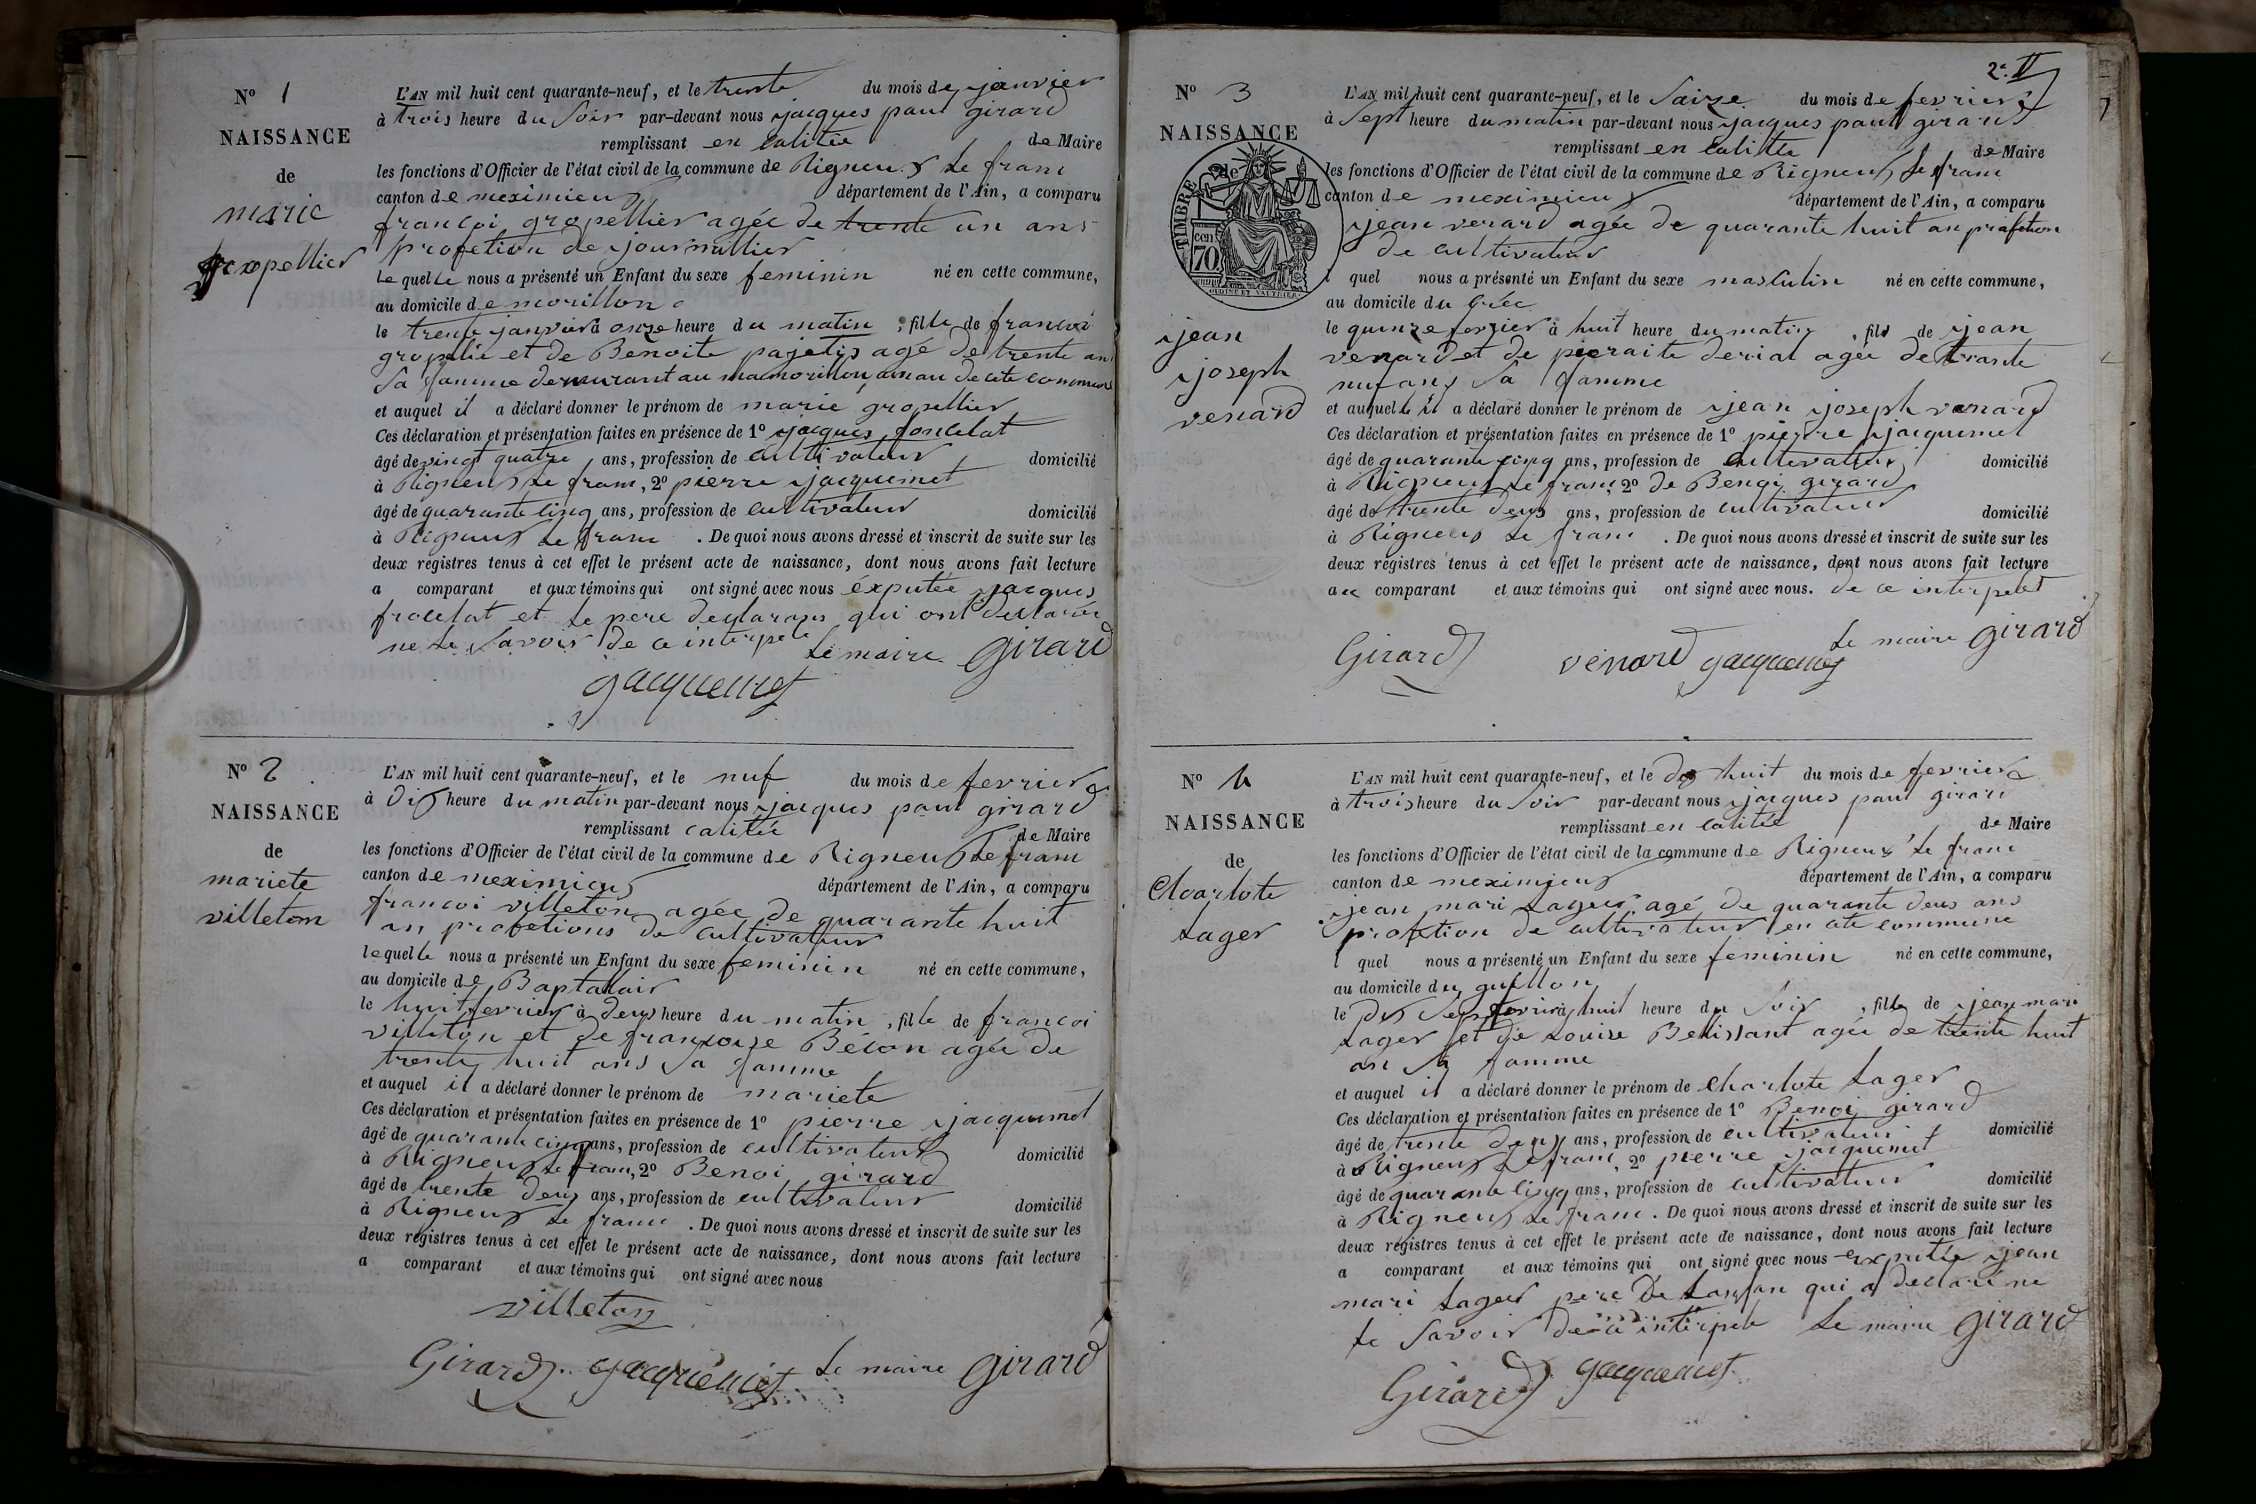 N° 1
NAISSANCE
de
marie
gropellier
L'AN mil huit cent quarante-neuf, et le trente du mois de janvier
à trois heure du soir par-devant nous jacques paul girard
remplissant en calitée de Maire
les fonctions d'Officier de l'état civil de la commune de Rigneux le franc
canton de meximieux département de l'Ain, a comparu
francoi gropellier agée de trente un ans
profetion de journallier
le quelle nous a présenté un Enfant du sexe feminin né en cette commune,
au domicile de morillon
le trente janvier à onze heure du matin, fille de francoi
gropelie et de Benoite pajetis agé de trente an
sa famme demurant au de cete commune
et auquel il a déclaré donner le prénom de marie gropellier
Ces déclaration et présentation faites en présence de 1° jacques
âgé de vingt quatre ans, profession de cultivateur domicilié
à Rigneux le franc, 2° pierre jacquemet
âgé de quarante cinq ans, profession de cultivateur domicilié
à Rigneux le franc. De quoi nous avons dressé et inscrit de suite sur les
deux régistres tenus à cet effet le présent acte de naissance, dont nous avons fait lecture
a comparant et aux témoins qui ont signé avec nous éxputée jacques
et le pere declarans qui ont declarée
ne le savoir de ce interpele le maire girard
jacquemet
N° 2
NAISSANCE
de
mariete
villeton
L'AN mil huit cent quarante-neuf, et le nuf du mois de fevrier
à dix heure du matin par-devant nous jacques paul girard
remplissant calitée de Maire
les fonctions d'Officier de l'état civil de la commune de Rigneux le franc
canton de meximieux département de l'Ain, a comparu
francoi villeton agée de quarante huit
an profetions de cultivateur
lequelle nous a présenté un Enfant du sexe feminin né en cette commune,
au domicile de Baptalair
le huit fevrier à deux heure du matin, fille de francoi
villeton et de francoize Béron agée de
trente huit ans sa famme
et auquel il a déclaré donner le prénom de mariete
Ces déclaration et présentation faites en présence de 1° pierre jacquemet
âgé de quarante cinq ans, profession de cultivateur domicilié
à Rigneux le franc, 2° Benoi girard
âgé de trente deux ans, profession de cultivateur domicilié
à Rigneux le franc. De quoi nous avons dressé et inscrit de suite sur les
deux régistres tenus à cet effet le présent acte de naissance, dont nous avons fait lecture
a comparant et aux témoins qui ont signé avec nous
villeton
Girard jacquemet le maire girard
2e
N° 3
NAISSANCE
de
TIMBRE
cen
70
jean
joseph
venard
L'AN mil huit cent quarante-neuf, et le saize du mois de fevrier
à sept heure du matin par-devant nous jacques paul girard
remplissant en calitée de Maire
les fonctions d'Officier de l'état civil de la commune de Rigneux le franc
canton de meximieux département de l'Ain, a comparu
jean verard agée de quarante huit an profetion
de cultivateur
l quel nous a présenté un Enfant du sexe masculin né en cette commune,
au domicile du
le quinze fevrier à huit heure du matin, fils de jean
venard et de pieraite derial agée de trante
nuf ans sa famme
et auquel il a déclaré donner le prénom de jean joseph venard
Ces déclaration et présentation faites en présence de 1° pierre jacquemet
âgé de quarante cinq ans, profession de cultivateur domicilié
à Rigneux le franc, 2° de Benoi girard
âgé de trente deux ans, profession de cultivateur domicilié
à Rigneux le franc. De quoi nous avons dressé et inscrit de suite sur les
deux régistres tenus à cet effet le présent acte de naissance, dont nous avons fait lecture
au comparant et aux témoins qui ont signé avec nous. de ce interpelet
le maire girard
Girard venard jacquemet
N° 4
NAISSANCE
de
Charlote
Lager
L'AN mil huit cent quarante-neuf, et le dix huit du mois de fevrier
à trois heure du soir par-devant nous jacques paul girard
remplissant en calitée de Maire
les fonctions d'Officier de l'état civil de la commune de Rigneux le franc
canton de meximieux département de l'Ain, a comparu
jean mari Lager agé de quarante deux ans
profetion de cultivateur en cete commune
l quel nous a présenté un Enfant du sexe feminin né en cette commune,
au domicile du guillon
le dix sept fevrier à huit heure du soir, fille de jean mari
Lager et de Louise Bellissant agée de trente huit
an sa famme
et auquel il a déclaré donner le prénom de Charlote Lager
Ces déclaration et présentation faites en présence de 1° Benoi girard
âgé de trente deux ans, profession de cultivateur domicilié
à Rigneux le franc, 2° pierre jacquemet
âgé de quarante cinq ans, profession de cultivateur domicilié
à Rigneux le franc. De quoi nous avons dressé et inscrit de suite sur les
deux régistres tenus à cet effet le présent acte de naissance, dont nous avons fait lecture
a comparant et aux témoins qui ont signé avec nous exputée jean
mari Lager pere de Lanfan qui a declaré ne
le savoir de ce interpele le maire girard
Girard jacquemet